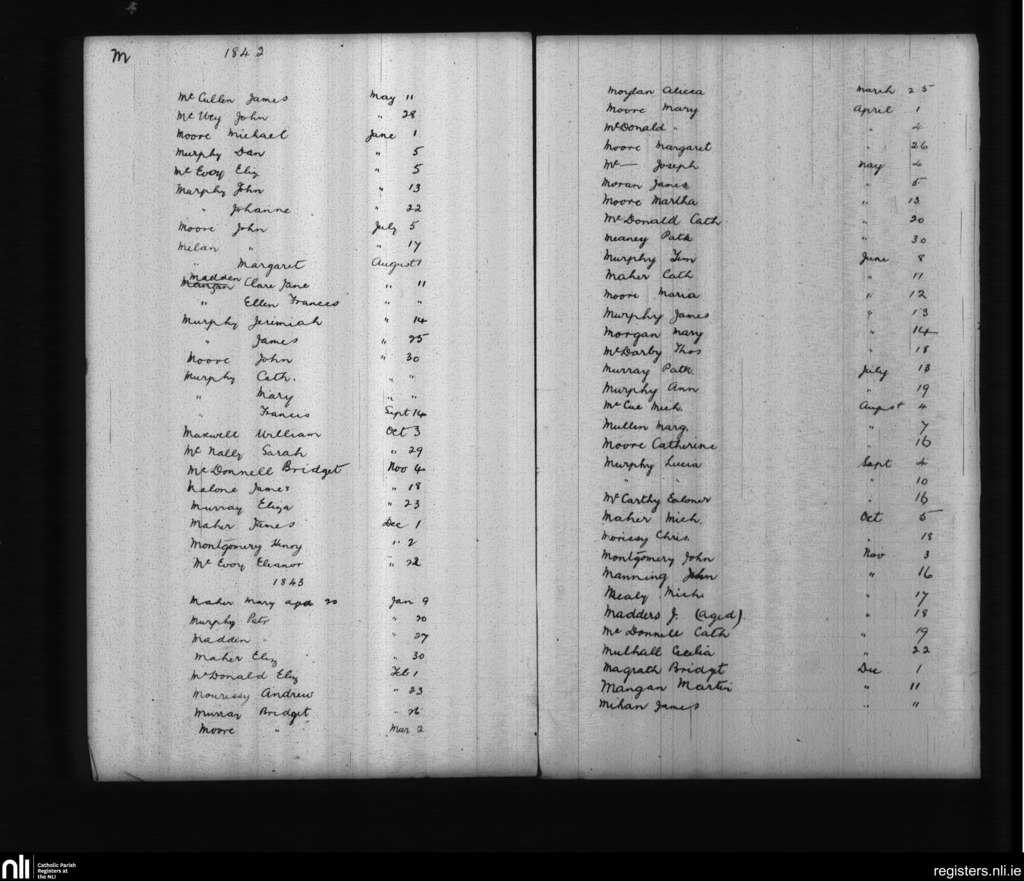 M 1842
McCullen James May 11
McVey John " 28
Moore Michael June 1
Murphy Dan " 5
McEvoy Eliz " 5
Murphy John " 13
" Johanne " 22
Moore John July 5
Milan " " 17
" Margaret August 1
Madden
Mangan Clare Jane " 11
" Ellen Frances " "
Murphy Jerimiah " 14
" James " 25
Moore John " 30
Murphy Cath. " "
" Mary " "
" Francis Sept 14
Maxwell William Oct 3
McNally Sarah " 29
McDonnell Bridget Nov 4
Malone James " 18
Murray Eliza " 23
Maher James Dec 1
Montgomery Henry " 2
McEvoy Eleanor " 22
1843
Maher Mary aged 20 Jan 9
Murphy Patr " 20
Madden " " 27
Maher Eliz " 30
McDonald Eliz Feb 1
Mourissy Andrew " 23
Murray Bridget " 26
Moore " Mar 2
Moylan Alicia March 25
Moore Mary April 1
McDonald " " 4
Moore Margaret " 26
Mc— Joseph May 4
Moran James " 5
Moore Martha " 13
McDonald Cath " 20
Meaney Patk " 30
Murphy Tim June 8
Maher Cath " 11
Moore Maria " 12
Murphy James " 13
Morgan Mary " 14
McDarby Thos " 18
Murray Patk. July 13
Murphy Ann " 19
McCue Mich. August 4
Mullen Marg. " 7
Moore Catherine " 16
Murphy Lucia Sept 4
" " " 10
McCarthy Ealoner " 16
Maher Mich. Oct 5
Morissy Chris. " 18
Montgomery John Nov 3
Manning John " 16
Mealy Mich. " 17
Madders J. (aged) " 18
McDonnell Cath " 19
Mulhall Cecilia " 22
Magrath Bridgt Dec 1
Mangan Martin " 11
Mihan James " "
nli Catholic Parish
Registers at
the NLI
registers.nli.ie